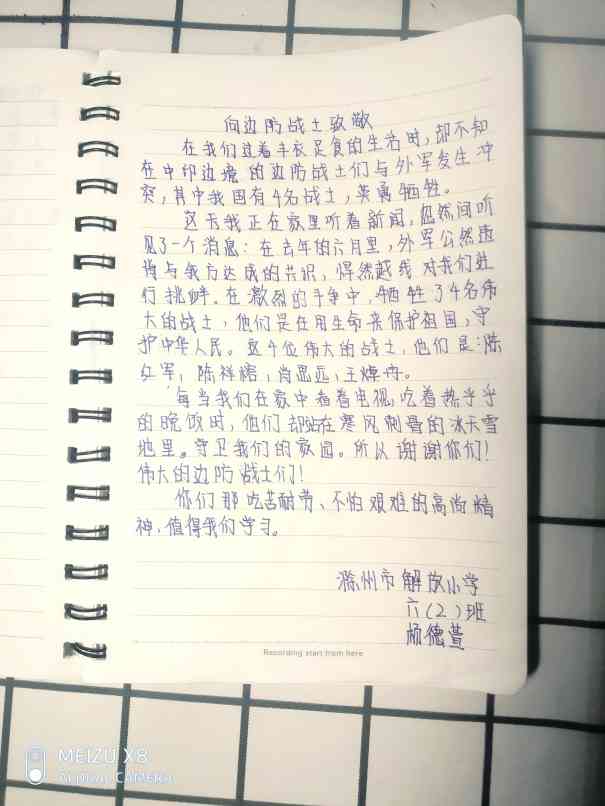 向边防战士致敬
在我们过着丰衣足食的生活时，却不知
在中印边境的边防战士们与外军发生冲
突，其中我国有4名战士，英勇牺牲。
这天我正在家里听着新闻，忽然间听
见了一个消息：在去年的六月里，外军公然违
背与我方达成的共识，悍然越线对我们进
行挑衅。在激烈的斗争中，牺牲了4名伟
大的战士，他们是在用生命来保护祖国，守
护中华人民。这4位伟大的战士，他们是：陈
红军，陈祥榕，肖思远，王焯冉。
每当我们在家中看着电视，吃着热乎乎
的晚饭时，他们却站在寒风刺骨的冰天雪
地里。守卫我们的家园。所以谢谢你们！
伟大的边防战士们！
你们那吃苦耐劳、不怕艰难的高尚精
神，值得我们学习。
滁州市解放小学
六（2）班
杨德萱
Recording start from here
MEIZU X8
AI DUAL CAMERA